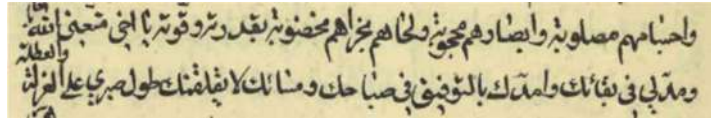 واجسامهم مصلوبة وابصارهم محجوبة ولحاهم بخراهم مخضوبة بقدرته وقوته يا اخي متعني الله
ومد لي في بقائك وامدك بالتوفيق في صباحك ومسائك لا يقلقنك طول صبري على العزلة
والعطلة